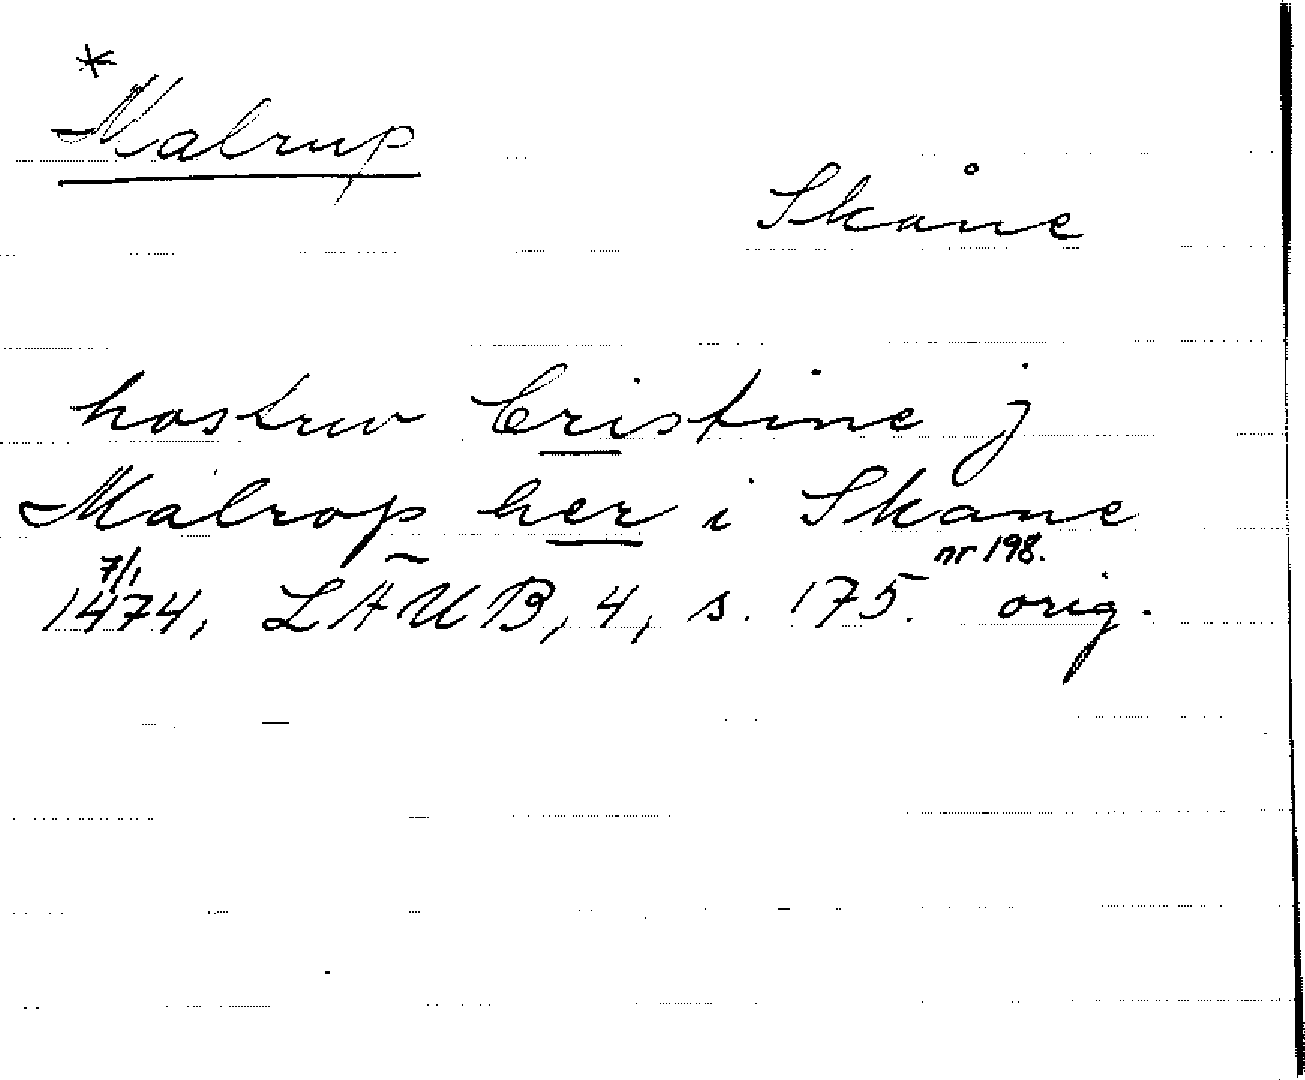 *Malrup
Skåne
hostrw Cristine j
Malrop her i Skane
7/1 1474, LÄUB, 4, s. 175. nr 198. orig.